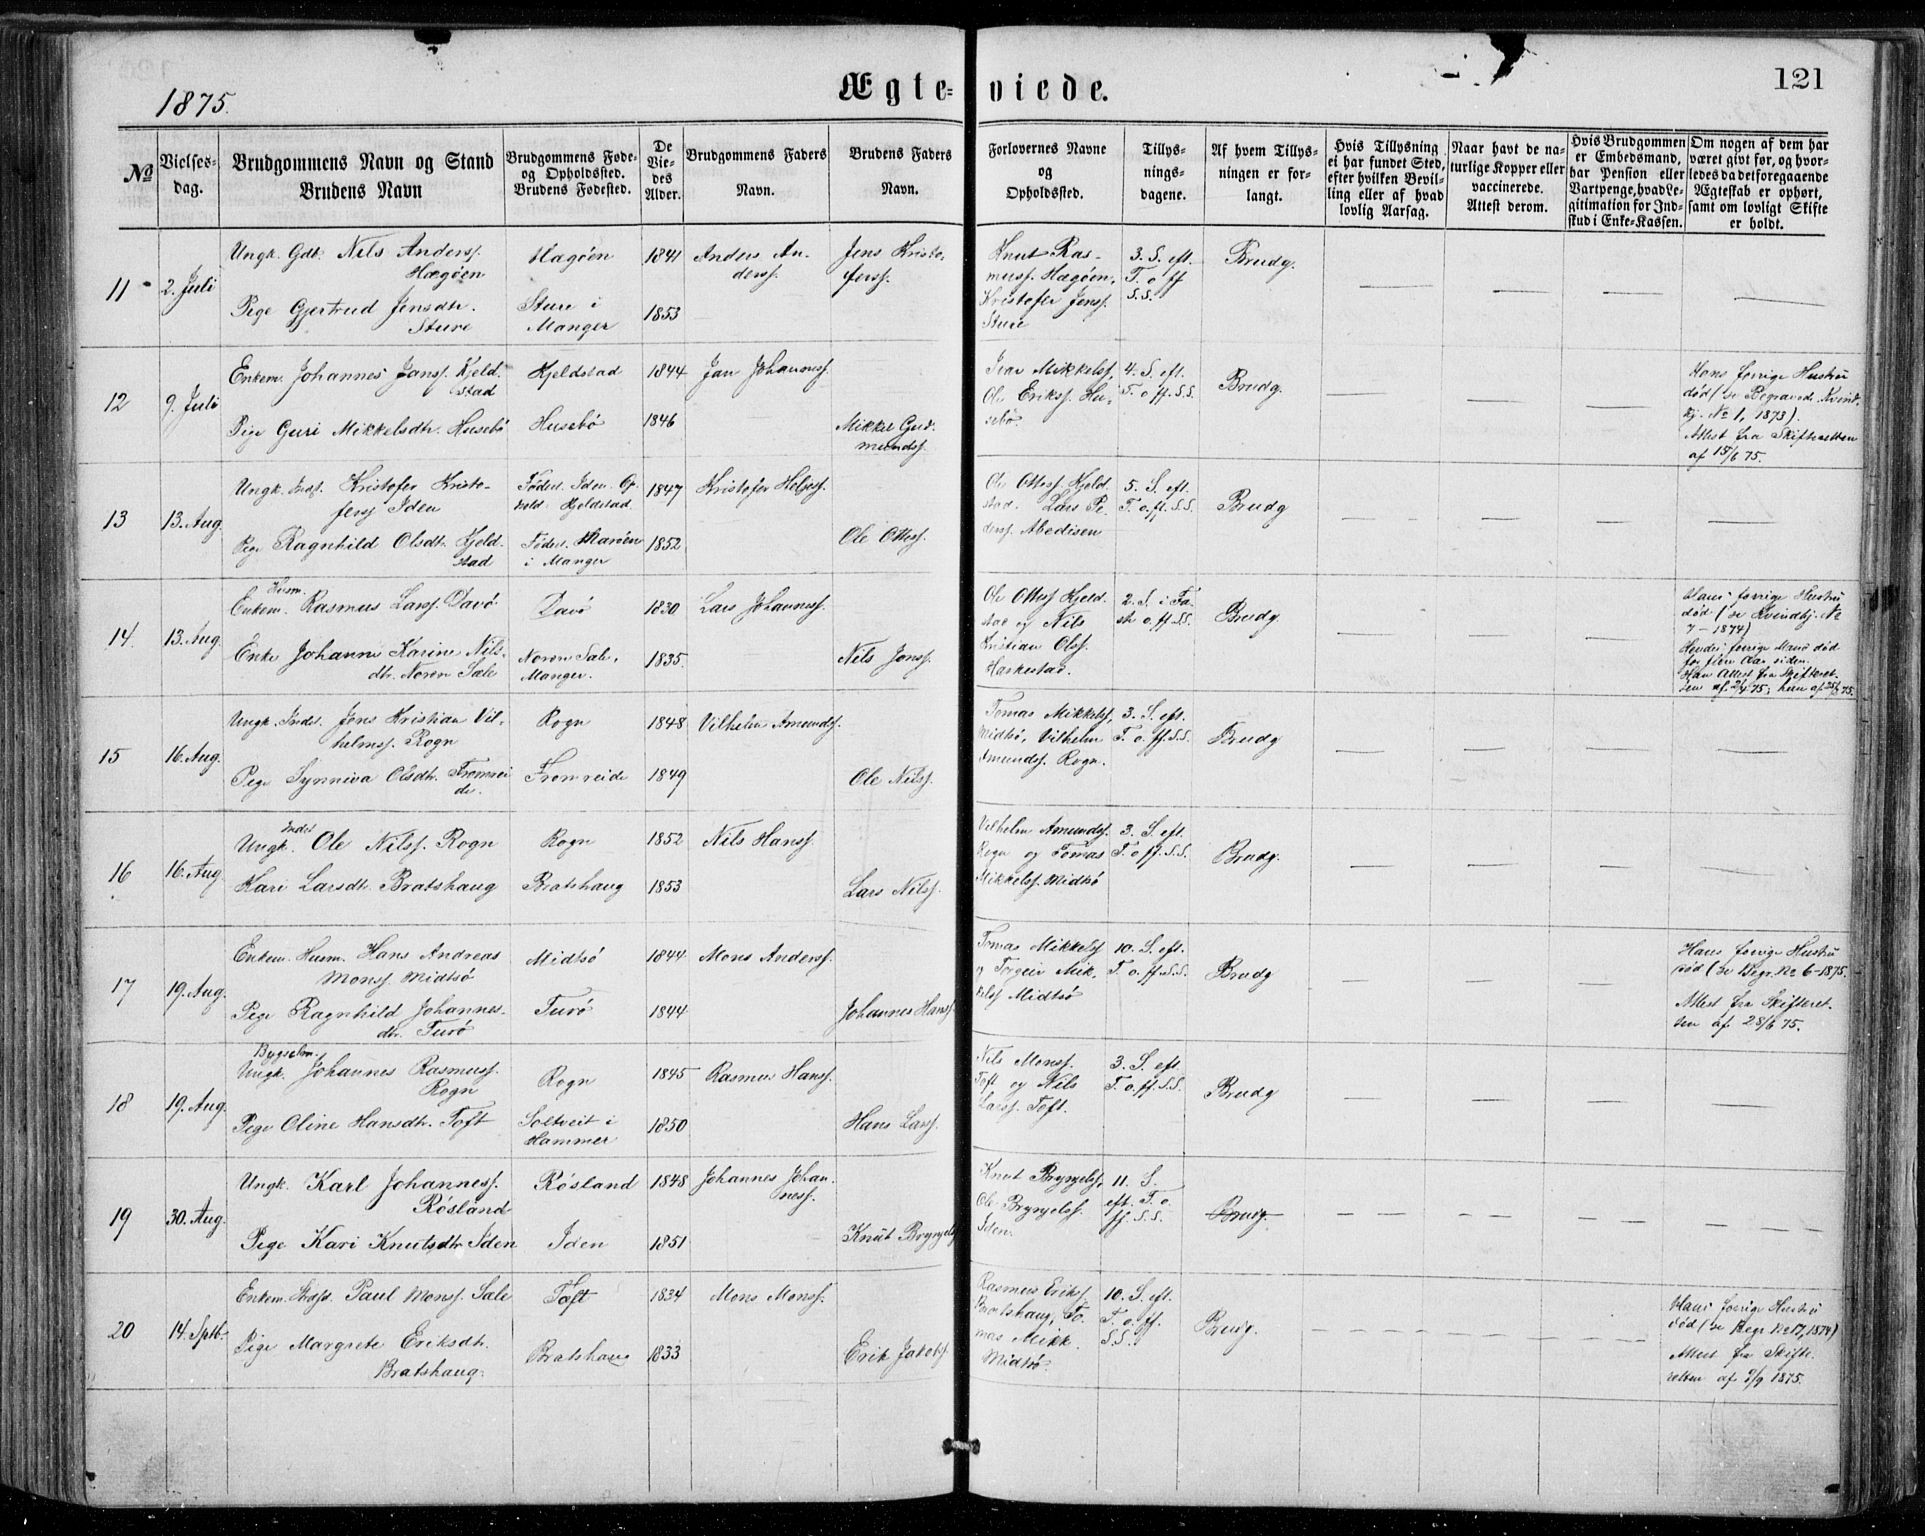 1875.
Ægte-viede.
121
No
Vielses-
dag.
Brudgommens Navn og Stand
Brudens Navn
Brudgommens Føde-
og Opholdssted.
Brudens Fødested.
De
Vie-
des
Alder.
Brudgommens Faders
Navn.
Brudens Faders
Navn.
Forlovernes Navne
og
Opholdssted.
Tillys-
nings-
dagene.
Af hvem Tillys-
ningen er for-
langt.
Hvis Tillysning
ei har fundet Sted,
efter hvilken Bevil-
ling eller af hvad
lovlig Aarsag.
Naar havt de na-
turlige Kopper eller
vaccinerede.
Attest derom.
Hvis Brudgommen
er Embedsmand,
har Pension eller
Vartpenge, hvad Le-
gitimation for Ind-
skud i Enke-Kassen.
Om nogen af dem har
været gift før, og hvor-
ledes da det foregaaende
Ægteskab er ophørt,
samt om lovligt Skifte
er holdt.
11
2. Juli
Ungk. Gdb. Nils Anderss.
Hægøen
Pige Gjertrud Jensdtr.
Sture
Hægøen
Sture i
Manger
1841
1853
Anders An-
derss.
Jens Kristo-
ferss.
Knut Ras-
muss. Hægøen,
Kristofer Jenss.
Sture
3. S. eft.
T. o. ff.
S.S.
Brudg.
12
9. Juli
Enkem. Johannes Janss. Kjeld-
stad
Pige Guri Mikkelsdtr. Husebø
Kjeldstad
Husebø
1844
1846
Jan Johanness.
Mikkel Gud-
mundss.
Ivar Mikkelss.
Ole Erikss. Hu-
sebø.
4. S. eft.
T. o. ff. S.S.
Brudg.
Hans forrige Hustru
død (se Begravede Kvind-
kj. No 1, 1873).
Attest fra Skifteretten
af 15/6 75.
13
13. Aug.
Ungk. Inds. Kristofer Kristo-
ferss Iden
Pige Ragnhild Olsdtr. Kjeld-
stad
Fødest. Iden. Op-
hold. Kjeldstad.
Fødest. Marøen
i Manger
1847
1852
Kristofer Helgess.
Ole Ottess.
Ole Ottess. Kjeld-
stad. Lars Pe-
derss. Abedisen
5. S. eft.
T. o. ff. S.S.
Brudg
14.
13. Aug.
Husm.
Enkem. Rasmus Larss. Davø
Enke Johanne Karine Nils-
dtr. Noren Sæle
Davø
Noren Sæle,
Manger.
1830
1835.
Lars Johanness.
Nils Jonss.
Ole Ottess Kjeld-
stad og Nils
Kristian Olss.
Haskestad.
2. S. i Fa-
ste o. ff. S.S.
Brudg.
Hans forrige Hustru
død (se Kvindkj. No
7 - 1874)
Hendes forrige Mand død
for flere Aar siden.
Han Attest fra Skifteret-
ten af 2/4 75; hun af 75.
15
16. Aug.
Ungk. Inds. Jens Kristian Vil-
helmss. Rogn
Pige Synneva Olsdtr. Fromrei-
de.
Rogn
Fromreide
1848
1849
Vilhelm Amundss.
Ole Nilss.
Tomas Mikkelss.
Midtø, Vilhelm
Amundss. Rogn.
3. S. eft.
T. o. ff. S.S.
Brudg
16
16. Aug
Inds.
Ungk. Ole Nilss. Rogn
Kari Larsdtr. Bratshaug
Rogn
Bratshaug
1852
1853
Nils Hanss.
Lars Nilss.
Vilhelm Amundss.
Rogn og Tomas
Mikkelss. Midtsø
3. S. eft.
T. o. ff. S.S.
Brudg.
17
19. Aug.
Enkem. Husm. Hans Andreas
Monss. Midtsø
Pige Ragnhild Johannes-
dtr. Turø
Midtsø
Turø
1844
1844
Mons Anderss.
Johannes Hanss.
Tomas Mikkelss
og Torgeir Mik-
kelss Midtsø
10. S. eft.
T. o. ff. S.S.
Brudg
Hans forrige Hustru
død (se Begr. No 6-1875.
Attest fra Skifteret-
ten af 28/6 75.
18
19. Aug.
Bygselm.
Ungk. Johannes Rasmuss.
Rogn
Pige Oline Hansdtr. Toft
Rogn
Soltveit i
Hammer
1845
1850
Rasmus Hanss.
Hans Larss.
Nils Monss.
Toft og Nils
Larss. Toft.
3. S. eft.
T. o. ff. S.S.
Brudg
19
30. Aug.
Ungk. Karl Johanness.
Røsland
Pige Kari Knutsdtr Iden
Røsland
Iden
1848
1851
Johannes Johan-
ness.
Knut Brynjelss
Knut Brynjelss.
Ole Brynjelss.
Iden.
11. S.
eft. T. o.
ff. S.S.
Brudg.
20
14. Sptb.
Enkem. Paul Monss. Sæle
Pige Margrete Eriksdtr.
Bratshaug.
Toft
Bratshaug
1834
1833
Mons Monss.
Erik Jakobss.
Rasmus Erikss.
Bratshaug, To-
mas Mikk.
Midtsø.
10. S. eft.
T. o. ff.
S.S.
Brudg.
Hans forrige Hustru
død (se Begr No 17, 1874)
Attest fra Skifte-
retten af 9/9 1875.